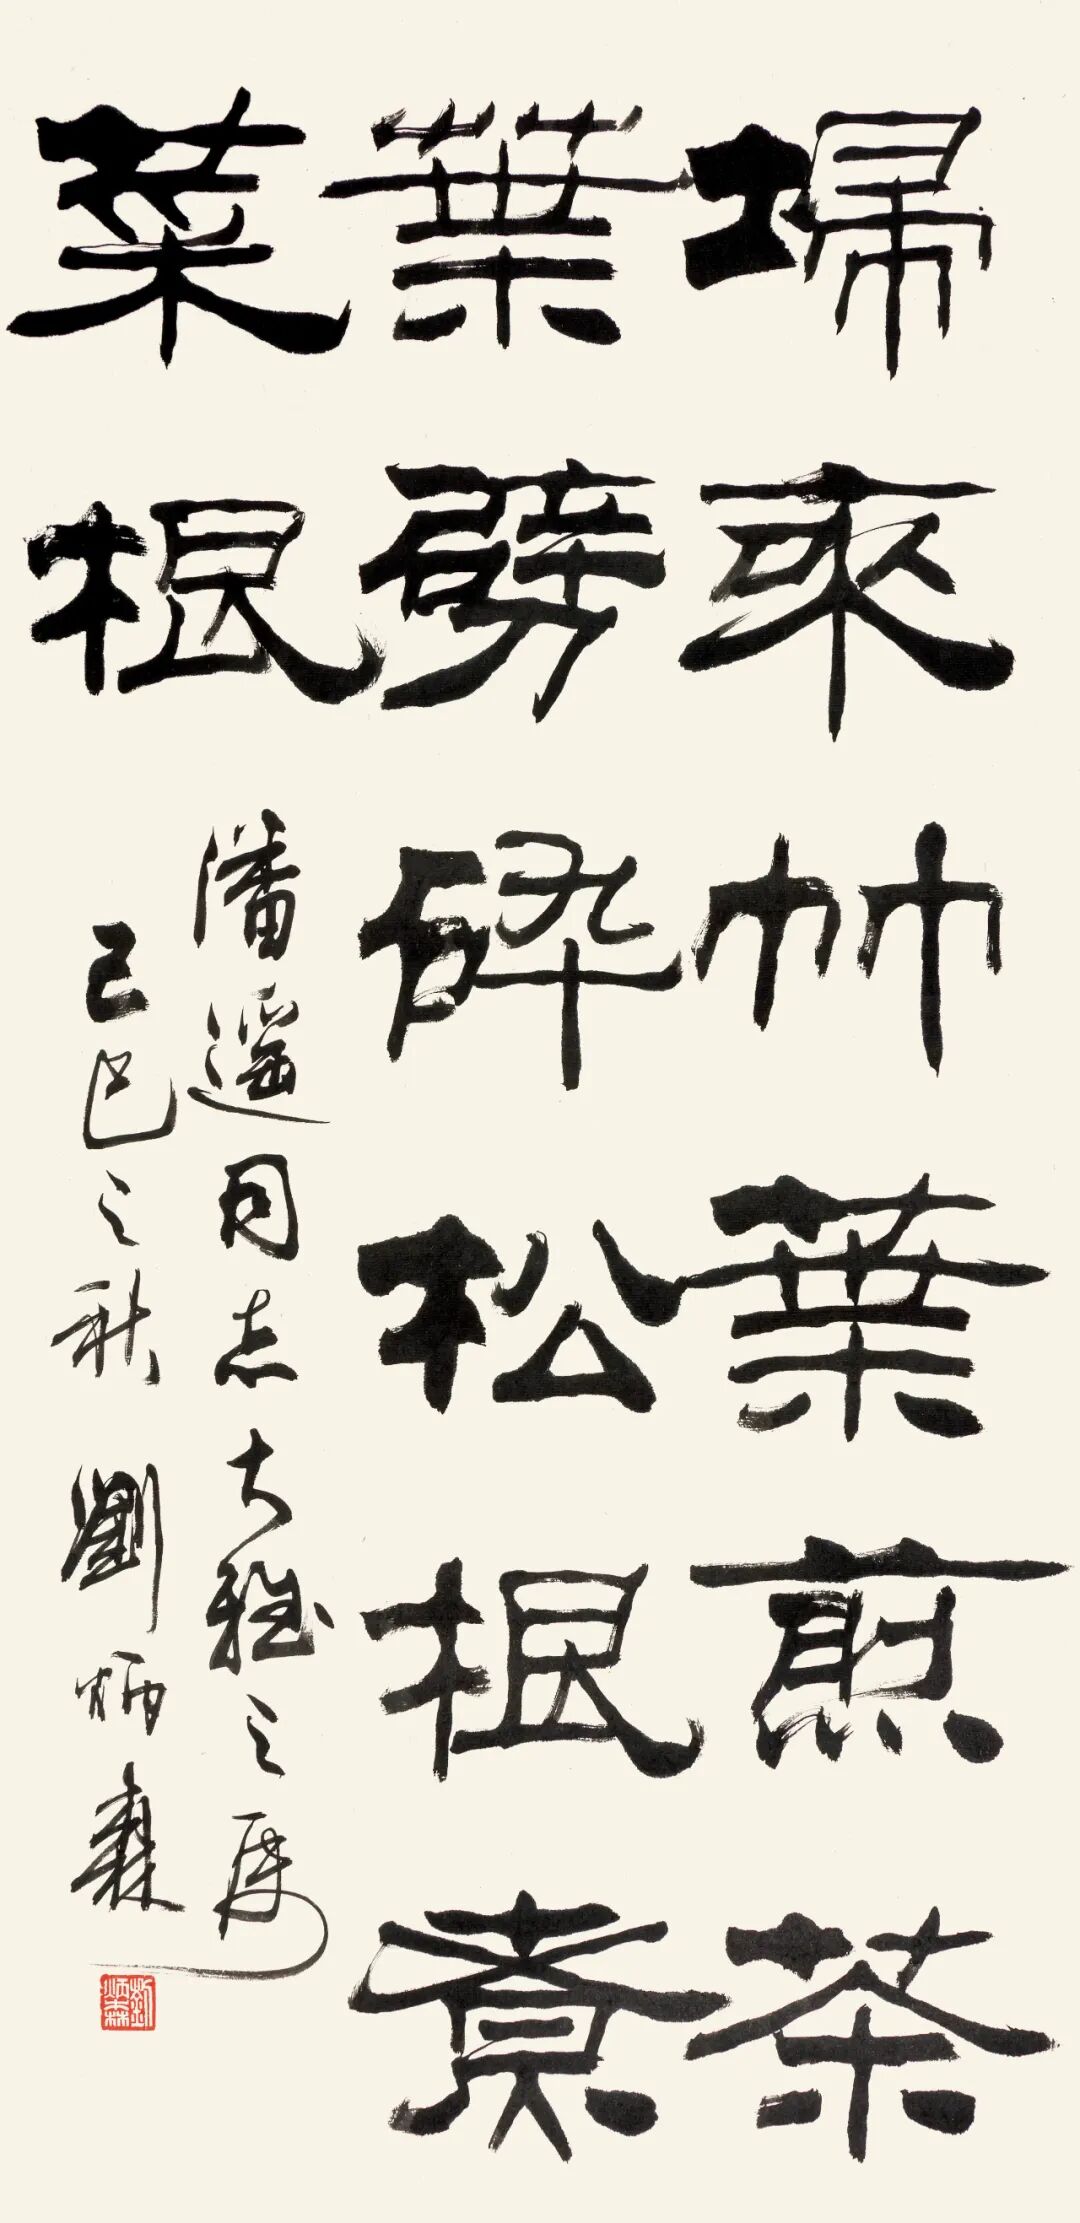 埽來竹葉煎茶
葉劈砕松根煮
菜根
潘遥同志大雅之属
己巳之秋 劉炳森
劉炳森